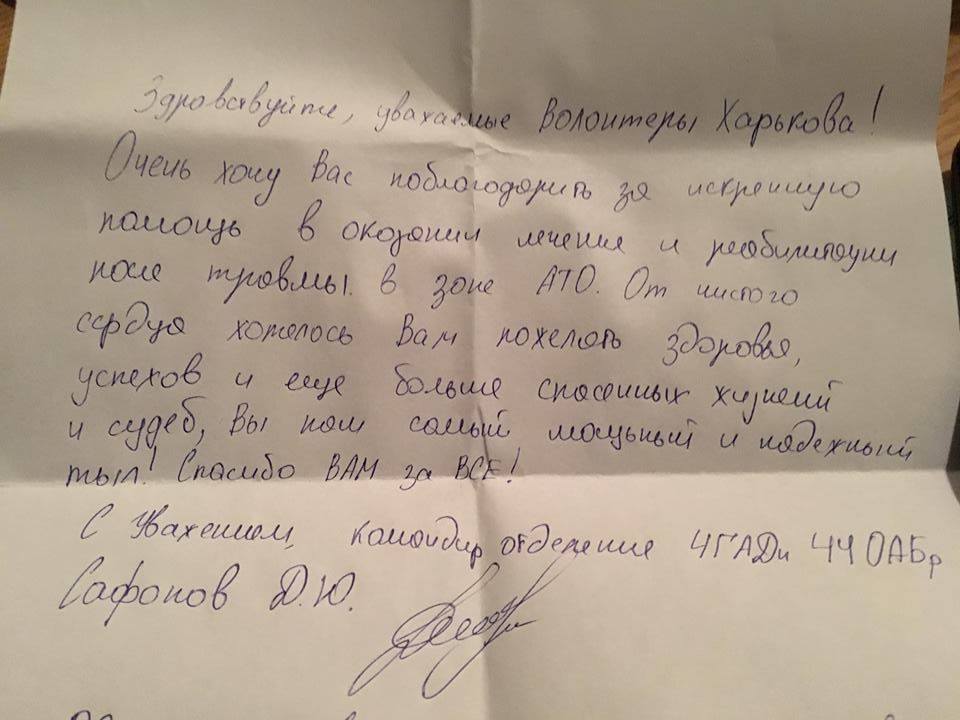 Здравствуйте, уважаемые Волонтеры Харькова!
Очень хочу Вас поблагодарить за искренную
помощь в оказании лечения и реабилитации
после травмы в зоне АТО. От чистого
сердца хотелось Вам пожелать здоровья,
успехов и еще больше спасенных жизней
и судеб, Вы нам самый мощьный и надежный
тыл! Спасибо ВАМ за ВСЕ!
С Уважением, командир отделения 4ГАДн 44ОАБр
Сафонов Д.Ю.